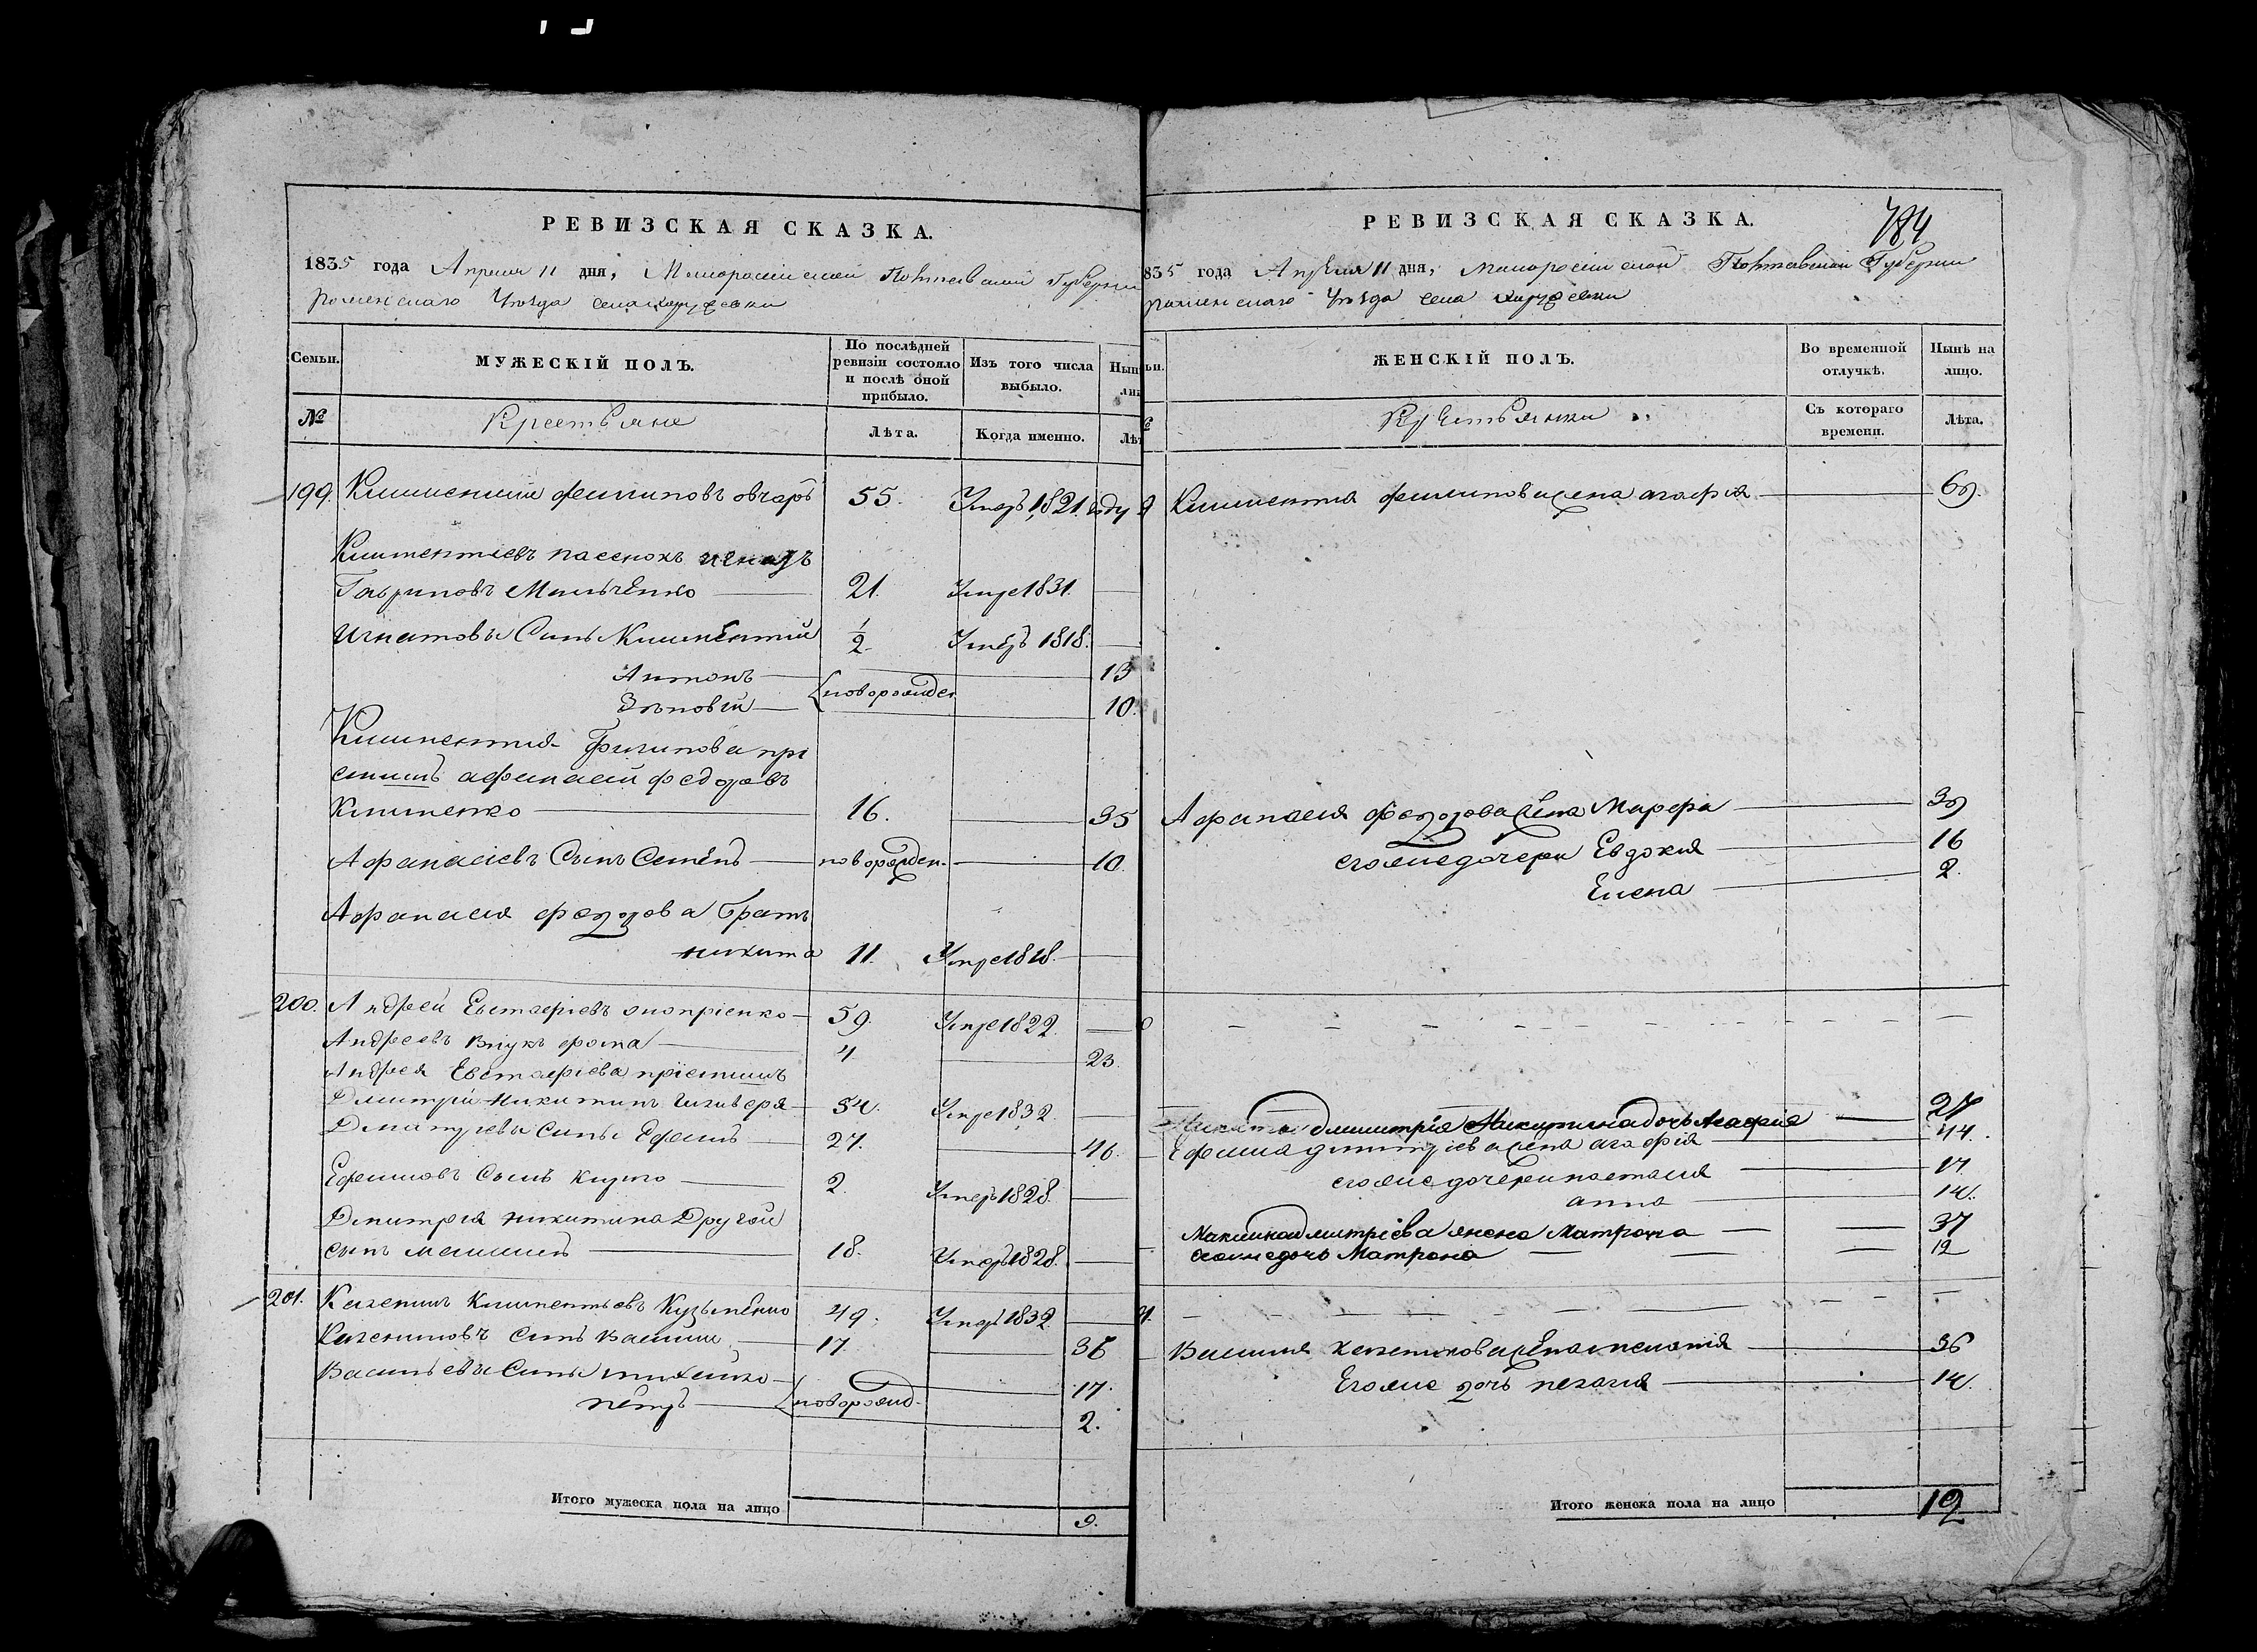 РЕВИЗСКАЯ СКАЗКА.
1835 года Апреля 11 дня, Малороссийской Полтавской Губернии
роменскаго Уѣзда села
Семьи.
МУЖЕСКІЙ ПОЛЪ.
По послѣдней ревизіи состояло и послѣ оной прибыло.
Изъ того числа выбыло.
Нын
ли
№
Крестьяне
Лѣта.
Когда именно.
Лѣт
199. Климентий Филиповъ овчаръ 55. Умеръ 1821 году
Климентіевъ пасенокъ игнатъ
Гавриловъ 21. Умре 1831.
Игнатовы Сины Климентий 1/2 Умеръ 1818.
Антонъ 13
Зѣновій новорожден 10.
Климентия Филипова при
емишъ афанасий федоровъ
Клименко 16. 35
Афанасіевъ Сынъ Семенъ новорожден. 10.
Афанасия федорова братъ
никита 11. Умре 1818.
200. Андрей Евстафіевъ оноприенко 59. Умре 1822.
Андреевъ внукъ фома 4 23.
Андрея Евстафіева пріемишъ
Дмитрій никитинъ 54. Умре 1832.
Дмитріевы Сины Ефимъ 27. 46.
Ефимовъ Сынъ Кирило 2. Умеръ 1828.
Дмитрия никитина Другой
сынъ максимъ 18. Умеръ 1828.
201. Каленикъ Климентьевъ Кузьменко 49. Умеръ 1832.
Калениковъ Синъ Василий 17. 36
Васильевы Сины тимофей 17.
петръ новорожд. 2.
Итого мужеска пола на лицо 9.
РЕВИЗСКАЯ СКАЗКА.
784
835 года Апреля 11 дня, Малороссийской Полтавской Губернии
роменскаго Уѣзда села
ьи.
ЖЕНСКІЙ ПОЛЪ.
Во временной отлучкѣ.
Нынѣ на лицо.
Крестьянки
Съ котораго времени.
Лѣта.
Климентия филипова жена агафия 69.
Афанасия федорова жена Марфа 39
егоже дочери Евдокия 16
Елена 2.
Димитрія Никитина дочь Агафия 27
Ефима дмитріева жена агафія 44.
егоже дочери настасия 17
анна 14.
Максима дмитріева жена Матрона 37
егоже дочь Матрона 12
Василия каленикова жена 36
Егоже дочь пелагия 14.
Итого женска пола на лицо 12